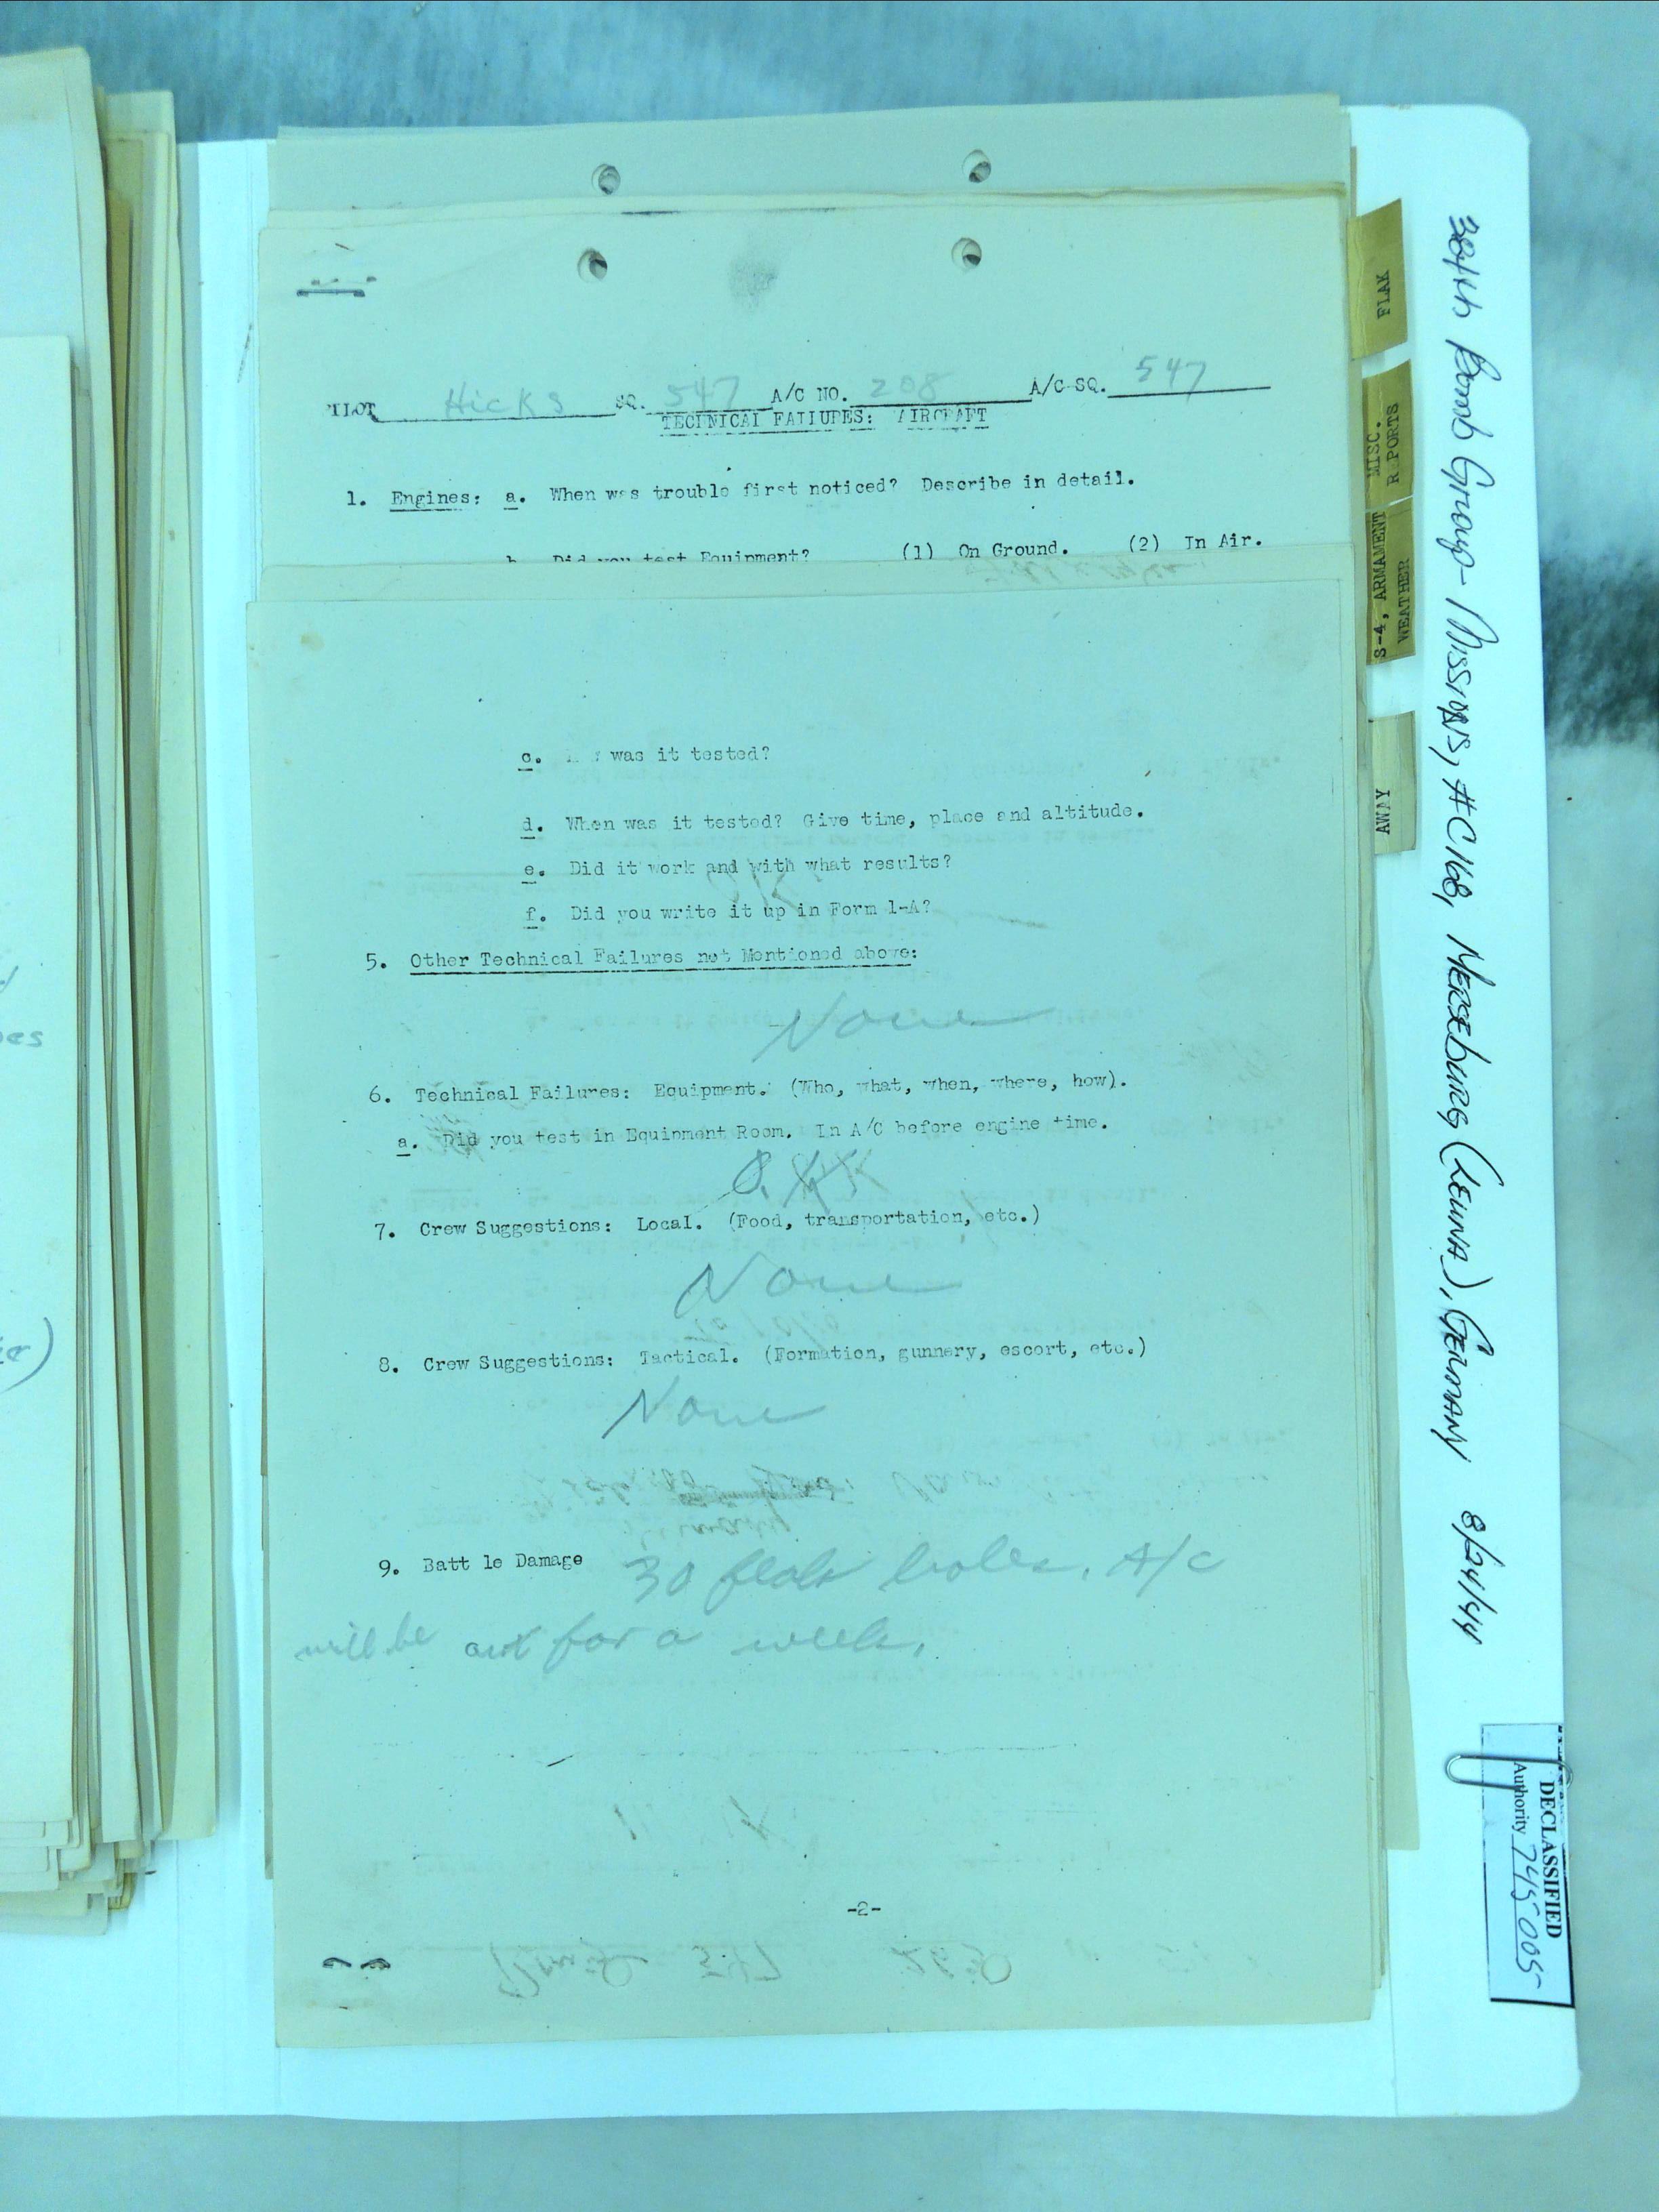 PILOT Hicks SQ. 547 A/C NO. 208 A/C SQ. 547
TECHNICAL FAILURES: AIRCRAFT
1. Engines: a. When was trouble first noticed? Describe in detail.
b. Did you test Equipment? (1) On Ground. (2) In Air.
c. was it tested?
d. When was it tested? Give time, place and altitude.
e. Did it work and with what results?
f. Did you write it up in Form 1-A?
5. Other Technical Failures not Mentioned above:
None
6. Technical Failures: Equipment. (Who, what, when, where, how).
a. Did you test in Equipment Room. In A/C before engine time.
O.K.
7. Crew Suggestions: Local. (Food, transportation, etc.)
None
8. Crew Suggestions: Tactical. (Formation, gunnery, escort, etc.)
None
9. Batt le Damage 30 flak holes. A/C
will be out for a week.
-2-
FLAK
MISC.
R PORTS
S-4, ARMAMENT
WEATHER
AWAY
384th Bomb Group - Missions, #C168, Merseburg (Leuna), Germany 8/24/44
DECLASSIFIED
Authority 745005